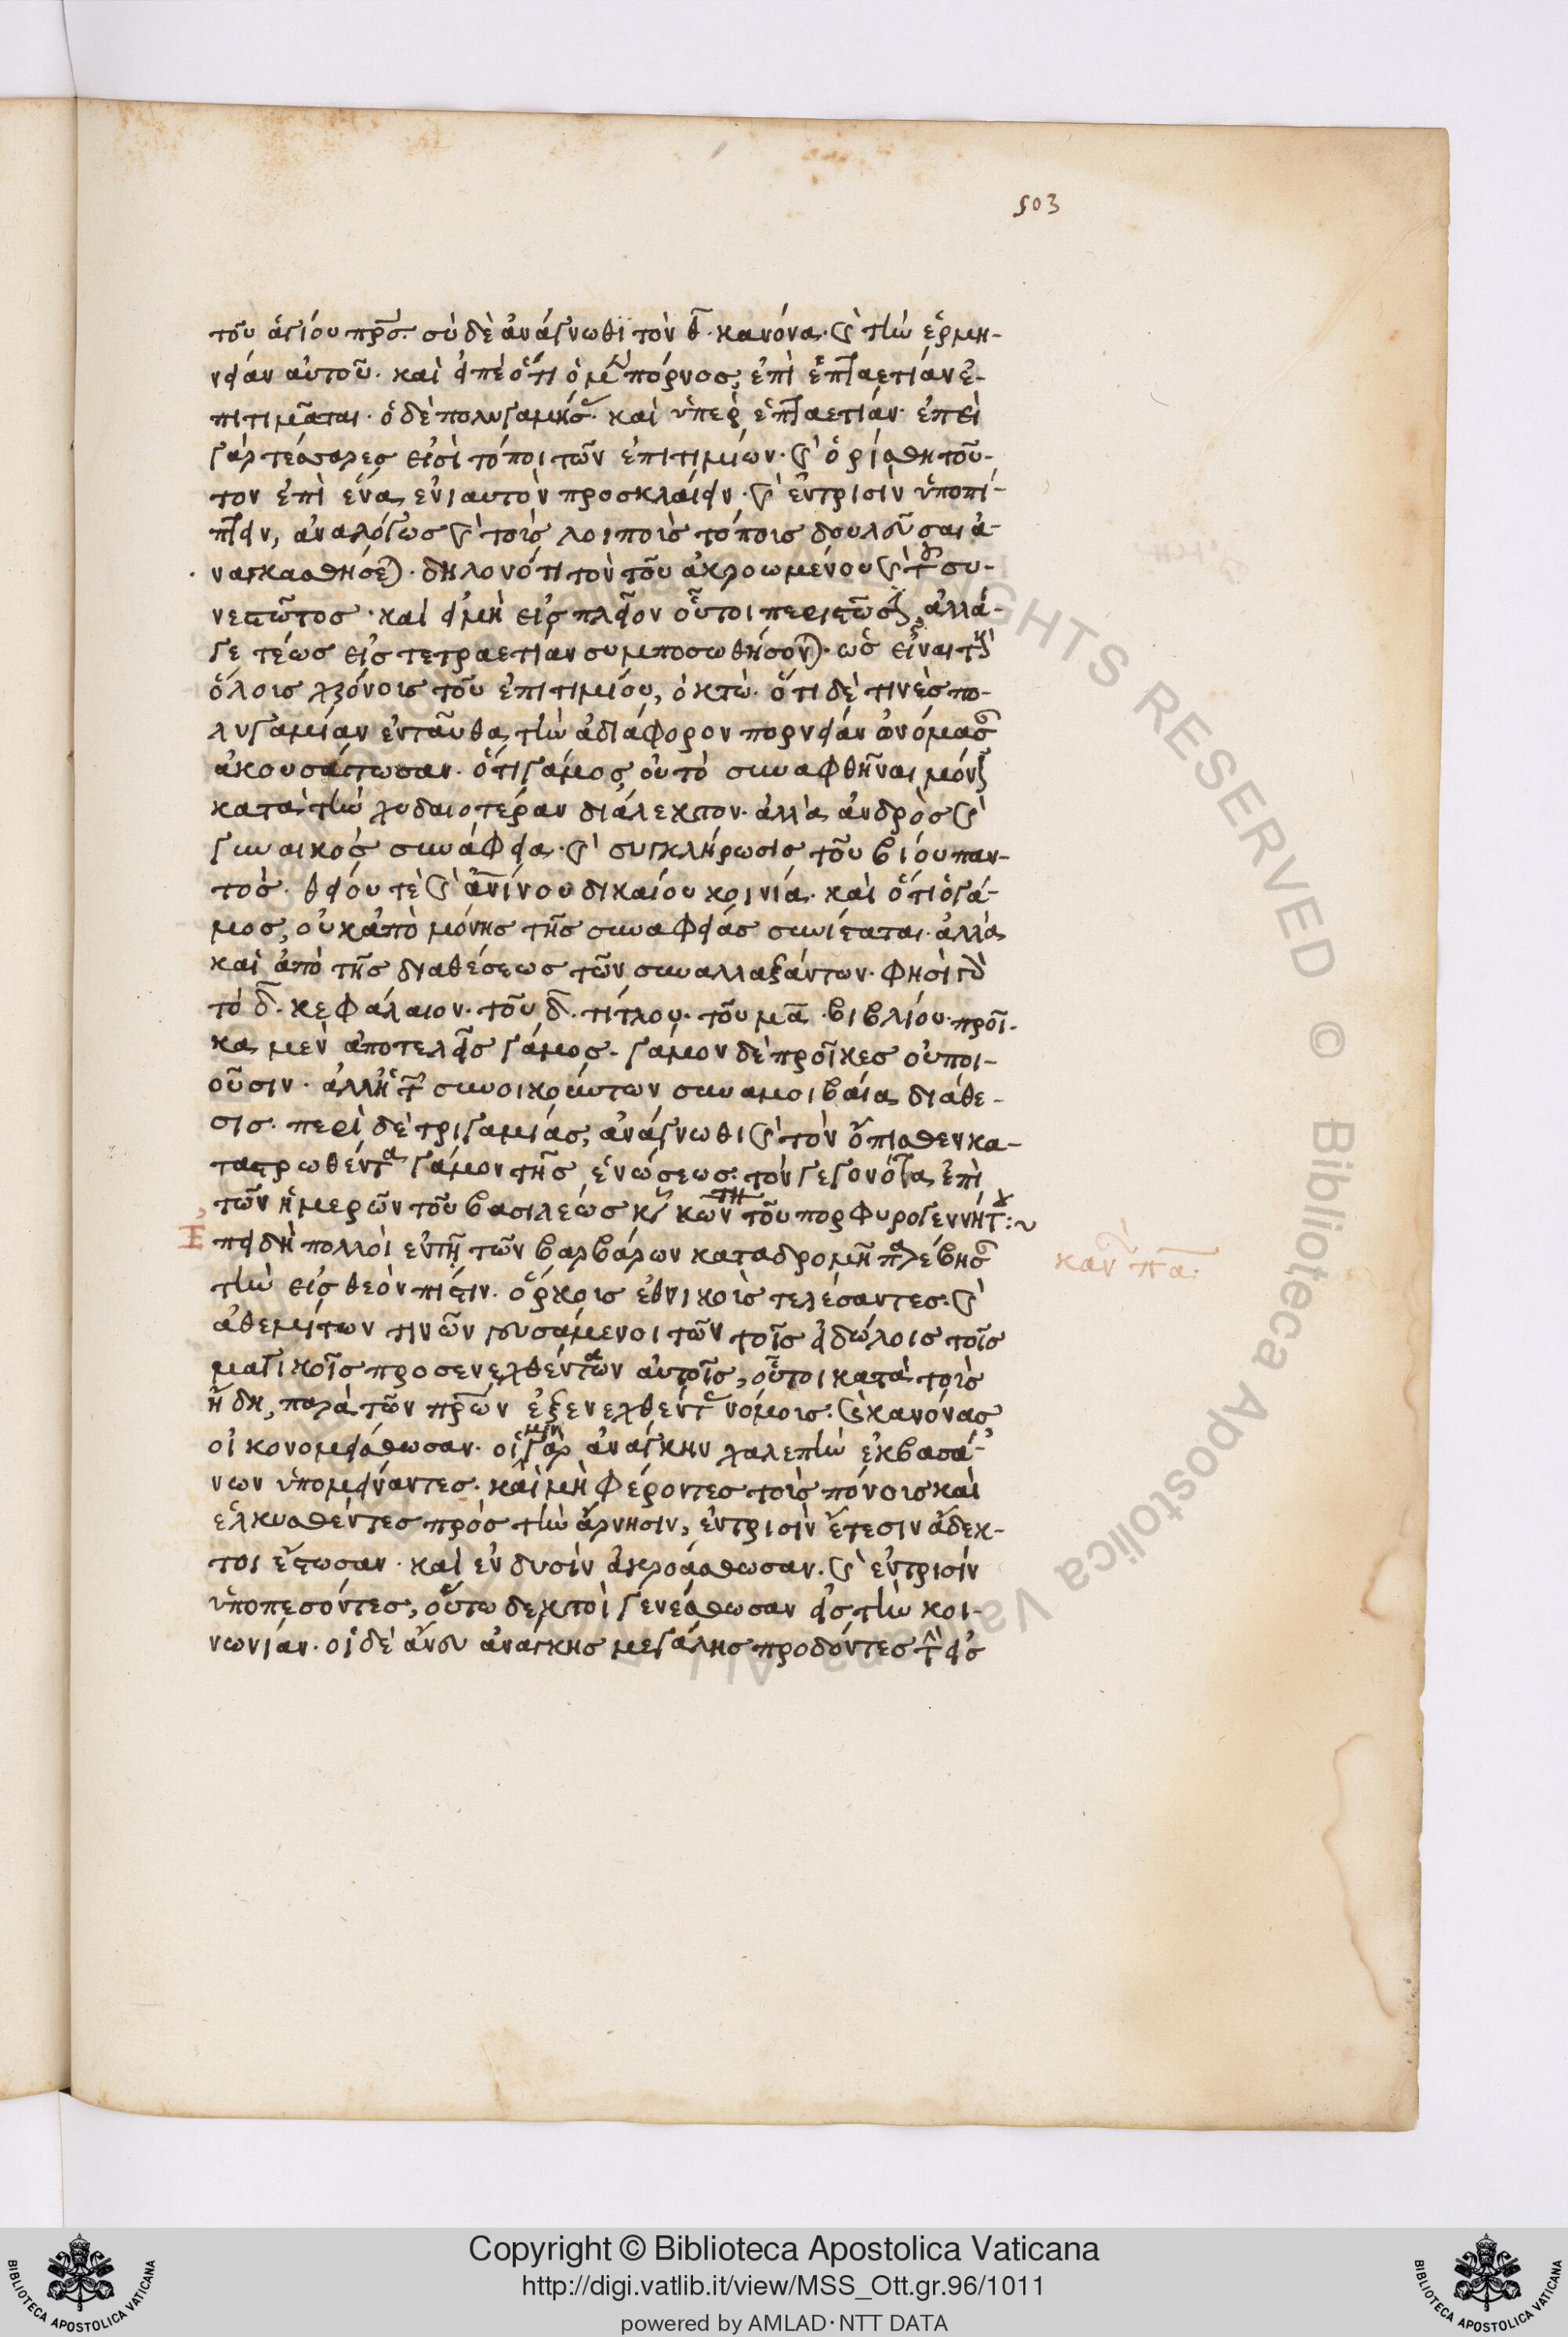 503
τοῦ ἁγίου πρς. σὺ δὲ ἀνάγνωθι τὸν θ. κανόνα. καὶ τὴν ἑρμη-
νείαν αὐτοῦ. καὶ εἰπὲ ὅτι ὁ μὲν πόρνος, ἐπὶ ἑπταετίαν ἐ-
πιτιμᾶται. ὁ δὲ πολύγαμος. καὶ ὑπὲρ ἑπταετίαν. ἐπεὶ
γὰρ τέσσαρες εἰσὶ τόποι τῶν ἐπιτιμίων. καὶ ὁρίσθη τοῦ-
τον ἐπὶ ἕνα ἐνιαυτὸν προσκλαίειν. καὶ ἐν τρισὶν ὑποπί-
πτειν, ἀναλόγως καὶ τοῖς λοιποῖς τόποις δουλεῦσαι ἀ-
ναγκασθήσεται. δηλονότι τὸν τοῦ ἀκροωμένου καὶ τοῦ συ-
νεστῶτος. καὶ εἰ μὴ εἰς πλεῖον οὗτοι περιστῶσιν, ἀλλά-
γε τέως εἰς τετραετίαν συμποσωθήσονται. ὡς εἶναι τοὺς
ὅλους χρόνους τοῦ ἐπιτιμίου, ὀκτώ. ὅτι δέ τινες πο-
λυγαμίαν ἐνταῦθα τὴν ἀδιάφορον πορνείαν ὠνόμασαν
ἀκουσάτωσαν. ὅτι γάμος οὐ τὸ συναφθῆναι μόνον
κατὰ τὴν χυδαιοτέραν διάλεκτον. ἀλλὰ ἀνδρὸς καὶ
γυναικὸς συνάφεια. καὶ συγκλήρωσις τοῦ βίου παν-
τός. θείου τὲ καὶ ἀνίνου δικαίου κοινωνία. καὶ ὅτι ὁ γά-
μος, οὐκ ἀπὸ μόνης τῆς συναφείας συνίσταται. ἀλλὰ
καὶ ἀπὸ τῆς διαθέσεως τῶν συναλλαξάντων. φησὶ γὰρ
τὸ δ. κεφάλαιον. τοῦ δ. τίτλου. τοῦ μα. βιβλίου. προῖ-
κα μὲν ἀποτελεῖ γάμος. γάμον δὲ προῖκες οὐ ποι-
οῦσιν. ἀλλ' ἡ τῶν συνοικούντων συναμοιβαία διάθε-
σις. περὶ δὲ τριγαμίας, ἀνάγνωθι καὶ τὸν ὄπισθεν κα-
ταστρωθέντα γάμον τῆς ἑνώσεως. τὸν γεγονότα ἐπὶ
τῶν ἡμερῶν τοῦ βασιλέως κυ κων τοῦ πορφυρογεννήτου:~
Ἐπειδὴ πολλοὶ ἐν τῇ τῶν βαρβάρων καταδρομῇ παρέβησαν
τὴν εἰς θεὸν πίστιν. ὅρκους ἐθνικοὺς τελέσαντες. καὶ
ἀθεμίτων τινῶν γευσάμενοι τῶν τοῖς εἰδώλοις τοῖς
μαγικοῖς προσενεχθέντων αὐτοῖς, οὗτοι κατὰ τοὺς
ἤδη, παρὰ τῶν πρων ἐξενεχθέντας νόμους. καὶ κανόνας
οἰκονομείσθωσαν. οἱ μὲν γὰρ ἀνάγκην χαλεπὴν ἐκ βασά-
νων ὑπομείναντες. καὶ μὴ φέροντες τοὺς πόνους καὶ
ἑλκυσθέντες πρὸς τὴν ἄρνησιν, ἐν τρισὶν ἔτεσιν ἄδεκ-
τοι ἔστωσαν. καὶ ἐν δυσὶν ἀκροάσθωσαν. καὶ ἐν τρισὶν
ὑποπεσόντες, οὕτω δεκτοὶ γενέσθωσαν εἰς τὴν κοι-
νωνίαν. οἱ δὲ ἄνευ ἀνάγκης μεγάλης προδόντες τὴν εἰς
καν πα.
Copyright © Biblioteca Apostolica Vaticana
http://digi.vatlib.it/view/MSS_Ott.gr.96/1011
powered by AMLAD·NTT DATA